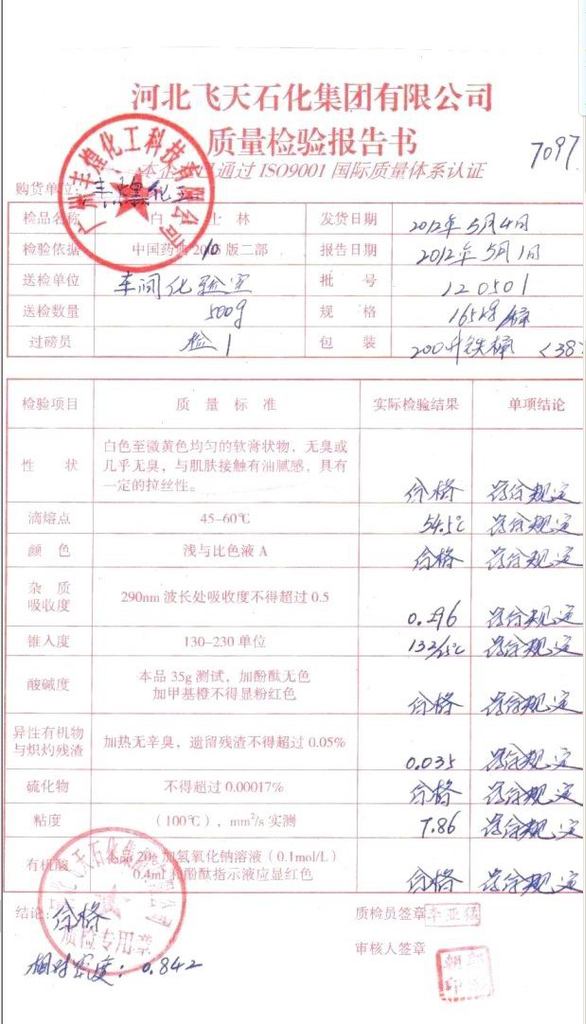 河北飞天石化集团有限公司
质量检验报告书
7097
本企 已通过 ISO9001 国际质量体系认证
购货单位: 丰煌化工
广州丰煌化工科技有限公司
检品名称 白 士林 发货日期 2012年5月4日
检验依据 中国药典2010版二部 报告日期 2012年5月1日
送检单位 车间化验室 批号 120501
送检数量 500g 规格 165kg/桶
过磅员 检1 包装 200升铁桶 <38
检验项目 质量标准 实际检验结果 单项结论
性状 白色至微黄色均匀的软膏状物，无臭或
几乎无臭，与肌肤接触有油腻感，具有
一定的拉丝性。 合格 符合规定
滴熔点 45-60℃ 54.5℃ 符合规定
颜色 浅与比色液 A 合格 符合规定
杂质
吸收度 290nm 波长处吸收度不得超过 0.5 0.296 符合规定
锥入度 130-230 单位 132/25℃ 符合规定
酸碱度 本品 35g 测试，加酚酞无色
加甲基橙不得显粉红色 合格 符合规定
异性有机物
与炽灼残渣 加热无辛臭，遗留残渣不得超过 0.05% 0.035 符合规定
硫化物 不得超过 0.00017% 合格 符合规定
粘度 (100℃)，mm²/s 实测 7.86 符合规定
有机酸 本品 20g 加氢氧化钠溶液（0.1mol/L）
0.4ml 和酚酞指示液应显红色 合格 符合规定
结论: 合格
质检专用章
质检员签章
审核人签章
相对密度: 0.842